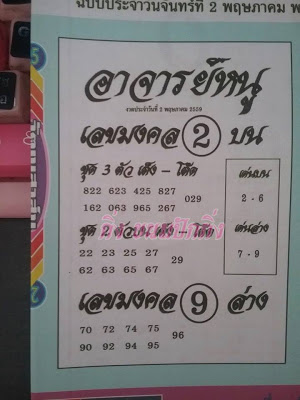 ฉบับประจำวันจันทร์ที่ 2 พฤษภาคม พ
อาจารย์หนู
งวดประจำวันที่ 2 พฤษภาคม 2559
เลขมงคล 2 บน
ชุด 3 ตัว เต็ง – โต๊ด
822 623 425 827
162 063 965 267
029
เด่นบน
2 - 6
ชุด 2 ตัวบน เต็ง – โต๊ด
22 23 25 27
62 63 65 67
29
เด่นล่าง
7 - 9
เลขมงคล 9 ล่าง
70 72 74 75
90 92 94 95
96